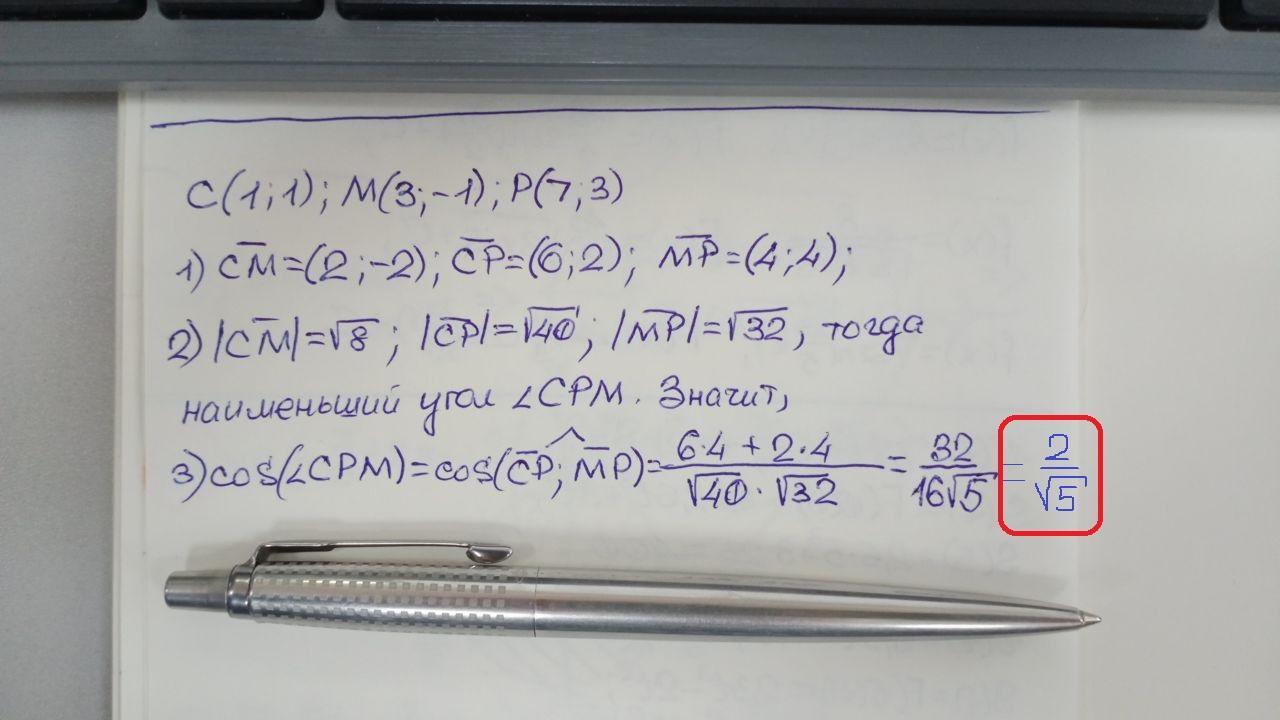 C(1;1); M(3;-1); P(7;3)
1) C̅M̅=(2;-2); C̅P̅=(6;2); M̅P̅=(4;4);
2) |C̅M̅|=√8; |C̅P̅|=√40; |M̅P̅|=√32, тогда
наименьший угол ∠CPM. Значит,
3) cos(∠CPM)=cos(C̅P̅;^M̅P̅)= (6·4+2·4)/(√40·√32) = 32/(16√5) = 2/√5